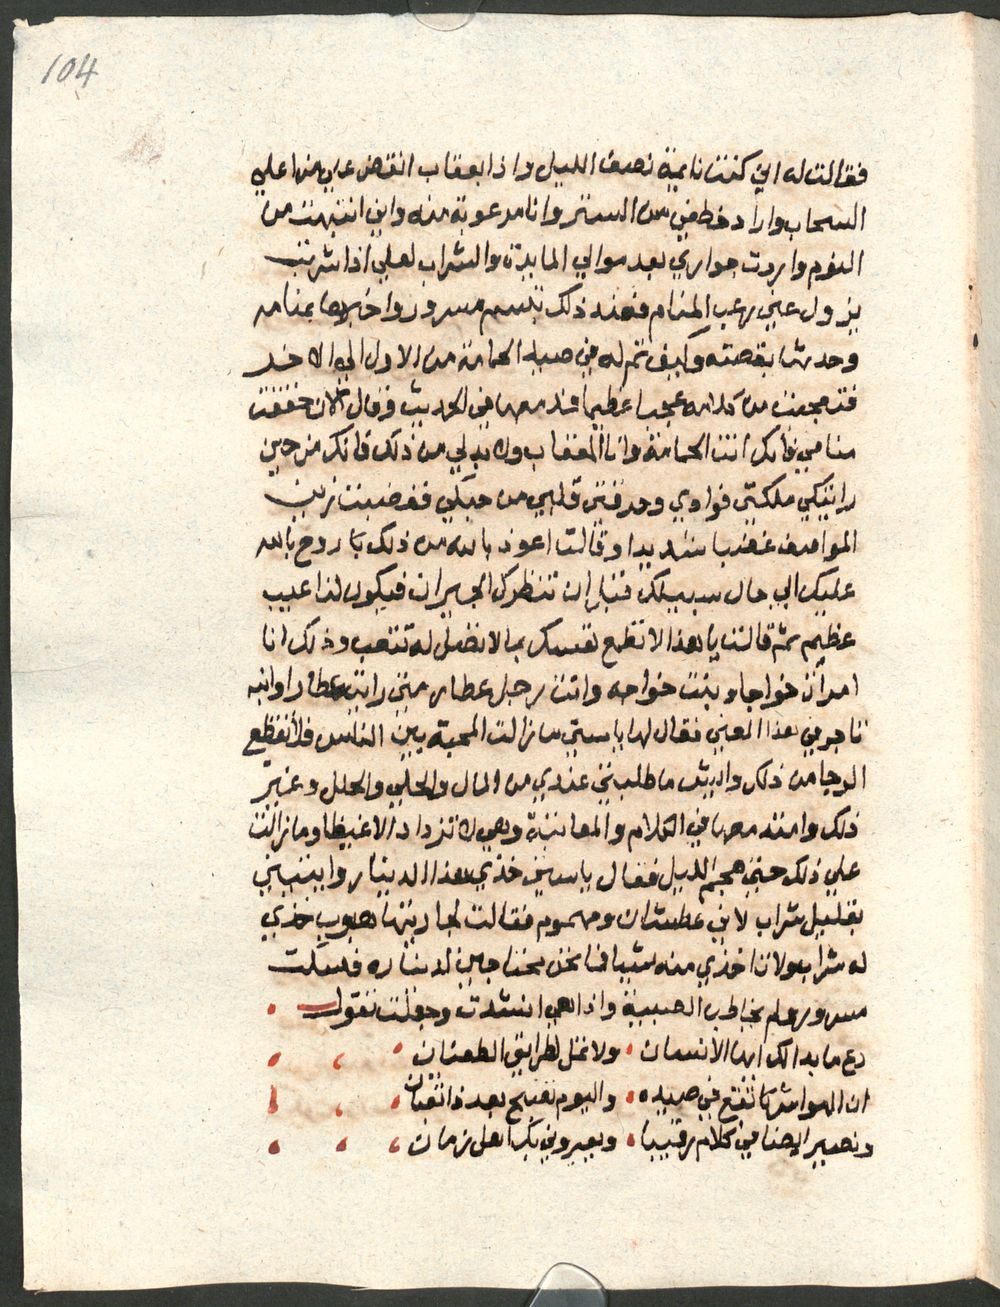 104
فقالت له اني كنت نايمة نصف الليل واذا بعقاب انقض علي من اعلي
السحاب واراد خطفي من الستر وانا مرعوبة منه واني انتبهت من
النوم وامرت جواري بعد موالي المايدة والشراب لعلي اذا شربت
يزول عني رعب المنام فعند ذلك تبسم مسرور واخبرها بمنامه
وحدثها بقصته وكيف تم له في صيد الحمامة من الاول الي الاخر
فتعجبت من كلامه عجبا عظيما فند معها في الحديث وقال الان حققت
منامي فانك انت الحمامة وانا العقاب ولا بد لي من ذلك فانك من حين
رايتكي ملكتي فوادي وحرقتي قلبي من حبكي فغضبت زين
المواصف غضبا شديدا وقالت اعوذ بالله من ذلك يا روح بالله
عليك الي حال سبيلك قبل ان تنظرك الجيران فيكون لنا عيب
عظيم ثم قالت يا هذا لا تطمع نفسك بما لا تصل له تتعب وذلك انا
امراة خواجا وبنت خواجه وانت رجل عطار متي رايت عطارا وابنه
تاجر في هذا المعني فقال لها يا ستي ما زالت المحبة بين الناس فلا تقطع
الرجا من ذلك وايش ما طلبتي عندي من المال والحلي والحلل وغير
ذلك وامتد معها في الكلام والمعاتبة وهي لا تزداد الا غيظا وما زالت
علي ذلك حتي هجم الليل فقال يا ستي خذي هذا الدينار وايتيني
بقليل شراب لاني عطشان ومهموم فقالت لجاريتها هبوب خذي
له شراب ولا تاخذي منه شيا فنا نحن محتاجين لديناره فسكت
مسرور ولم يخاطب الصبية واذا هي انشدت وجعلت تقول
دع ما بدا لك ايها الانسان ولا تمل لطرايق الطغيان
ان الهوا شركا تقع في صيده واليوم تصبح بعد ذا تعبان
وتصير ايضا في كلام رقيبنا ويعيروني بك اهل زمان